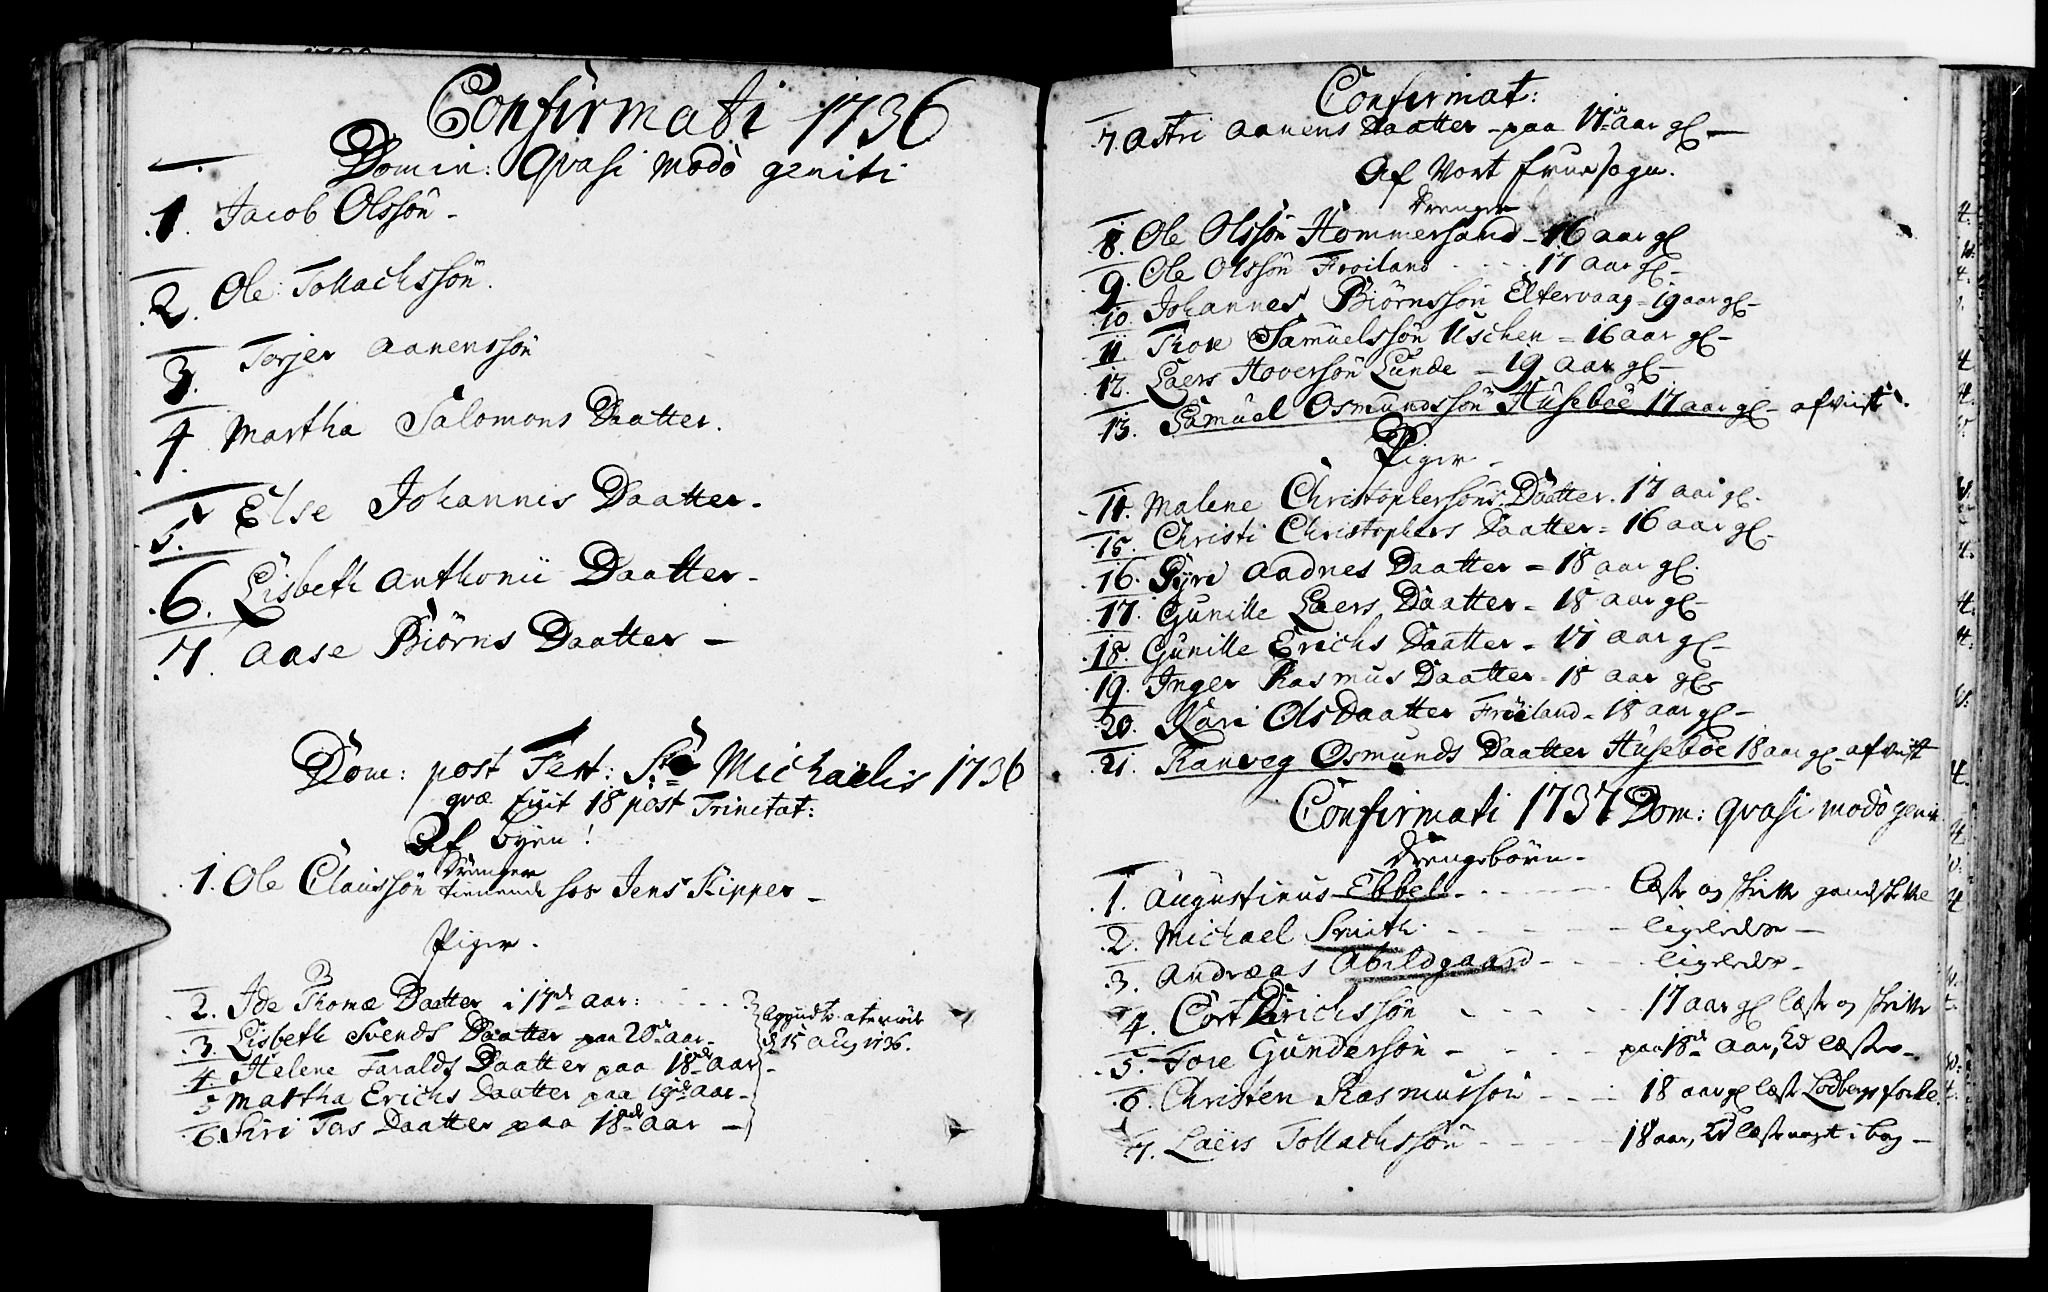 Confirmati 1736
Domin: Qvasi modo geniti
1. Jacob Olssön -
2. Ole Tollachssön.
3. Torjer Aanenssön
4. Martha Salomons Daatter.
5. Else Johannis Daatter -
6. Lisbeth Anthonii Daatter -
7. Aase Biörns Daatter -
Dom: post Fest: Michaelis 1736
qvæ fuit 18 post Trinitat:
Af byen!
Drenger
1. Ole Claussön tienende hos Jens Skipper -
Piger.
2. Ide Thomæ Daatter i 17de aar:
3. Lisbeth Svends Daatter paa 20de aar -
4. Helene Faralds Daatter paa 18de aar -
5 Martha Erichs Daatter paa 19de aar -
6. Siri Tors Daatter paa 18de aar -
d 15 Aug 1736.
Confirmat:
7. Astri Aanens Daatter - paa 17de aar gl -
Af Vort frue sogn.
Drenger
8. Ole Olssön Hommersand - 16 aar gl
9. Ole Olssön Froiland - 17 aar gl -
10. Johannes Biörnssön Eltervaag - 19 aar gl -
11. Thore Samuelssön Uschen = 16 aar gl -
12. Laers Hoversön Lunde - 19 aar gl -
13. Samuel Osmundssön Huseböe 17 aar gl - afviist.
Piger -
14. Malene Christophersöns Daatter. 17 aar gl -
15. Christi Christophers Daatter = 16 aar gl -
16. Gyri Aadnes Daatter = 18 aar gl.
17. Gunille Laers Daatter = 18 aar gl -
18. Gunille Erichs Daatter - 17 aar gl -
19. Inger Rasmus Daatter - 18 aar gl -
20. Kari Ols Daatter Fröiland - 18 aar gl -
21. Ranveg Osmunds Daatter Huseböe 18 aar gl - afviist
Confirmati 1737 Dom: qvasi modo geni
Drengebörn -
1. Augustinus Ebbel - læste og skrev
2. Michael Smith - ligeledes -
3. Andreas Abildgaard - ligeledes -
4. Cort Dirichssön - 17 aar gl læste og
5. Tore Gundersön - paa 18de aar, læste -
6. Christen Rasmussön - 18 aar gl læste
7. Laers Tollachssön - 18 aar, læste i bog -